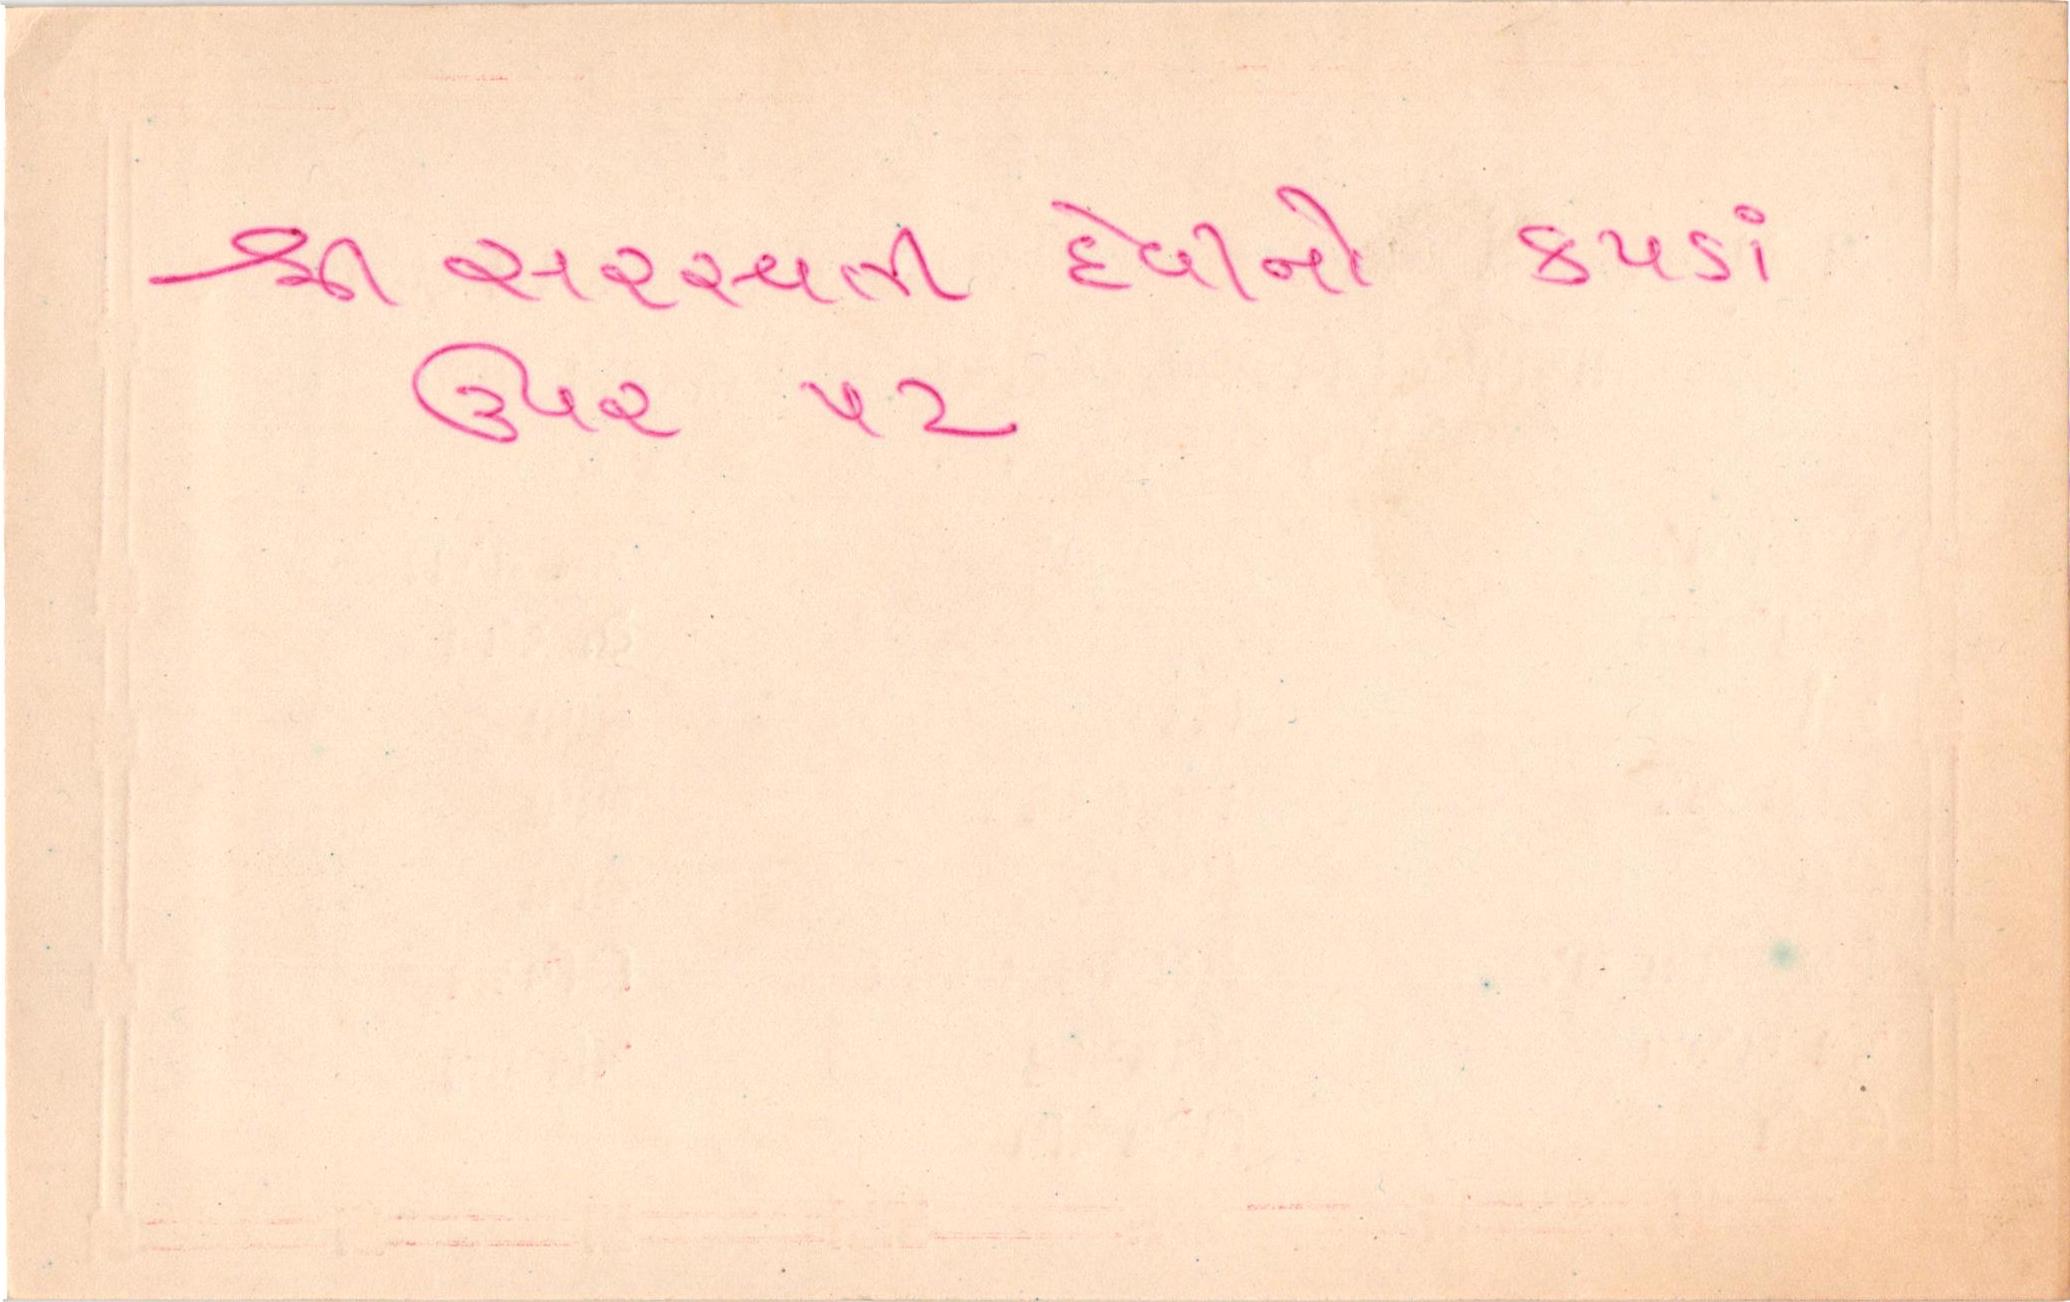 શ્રી સરસ્વતી દેવીનો કપડાં
ઉપર પટ